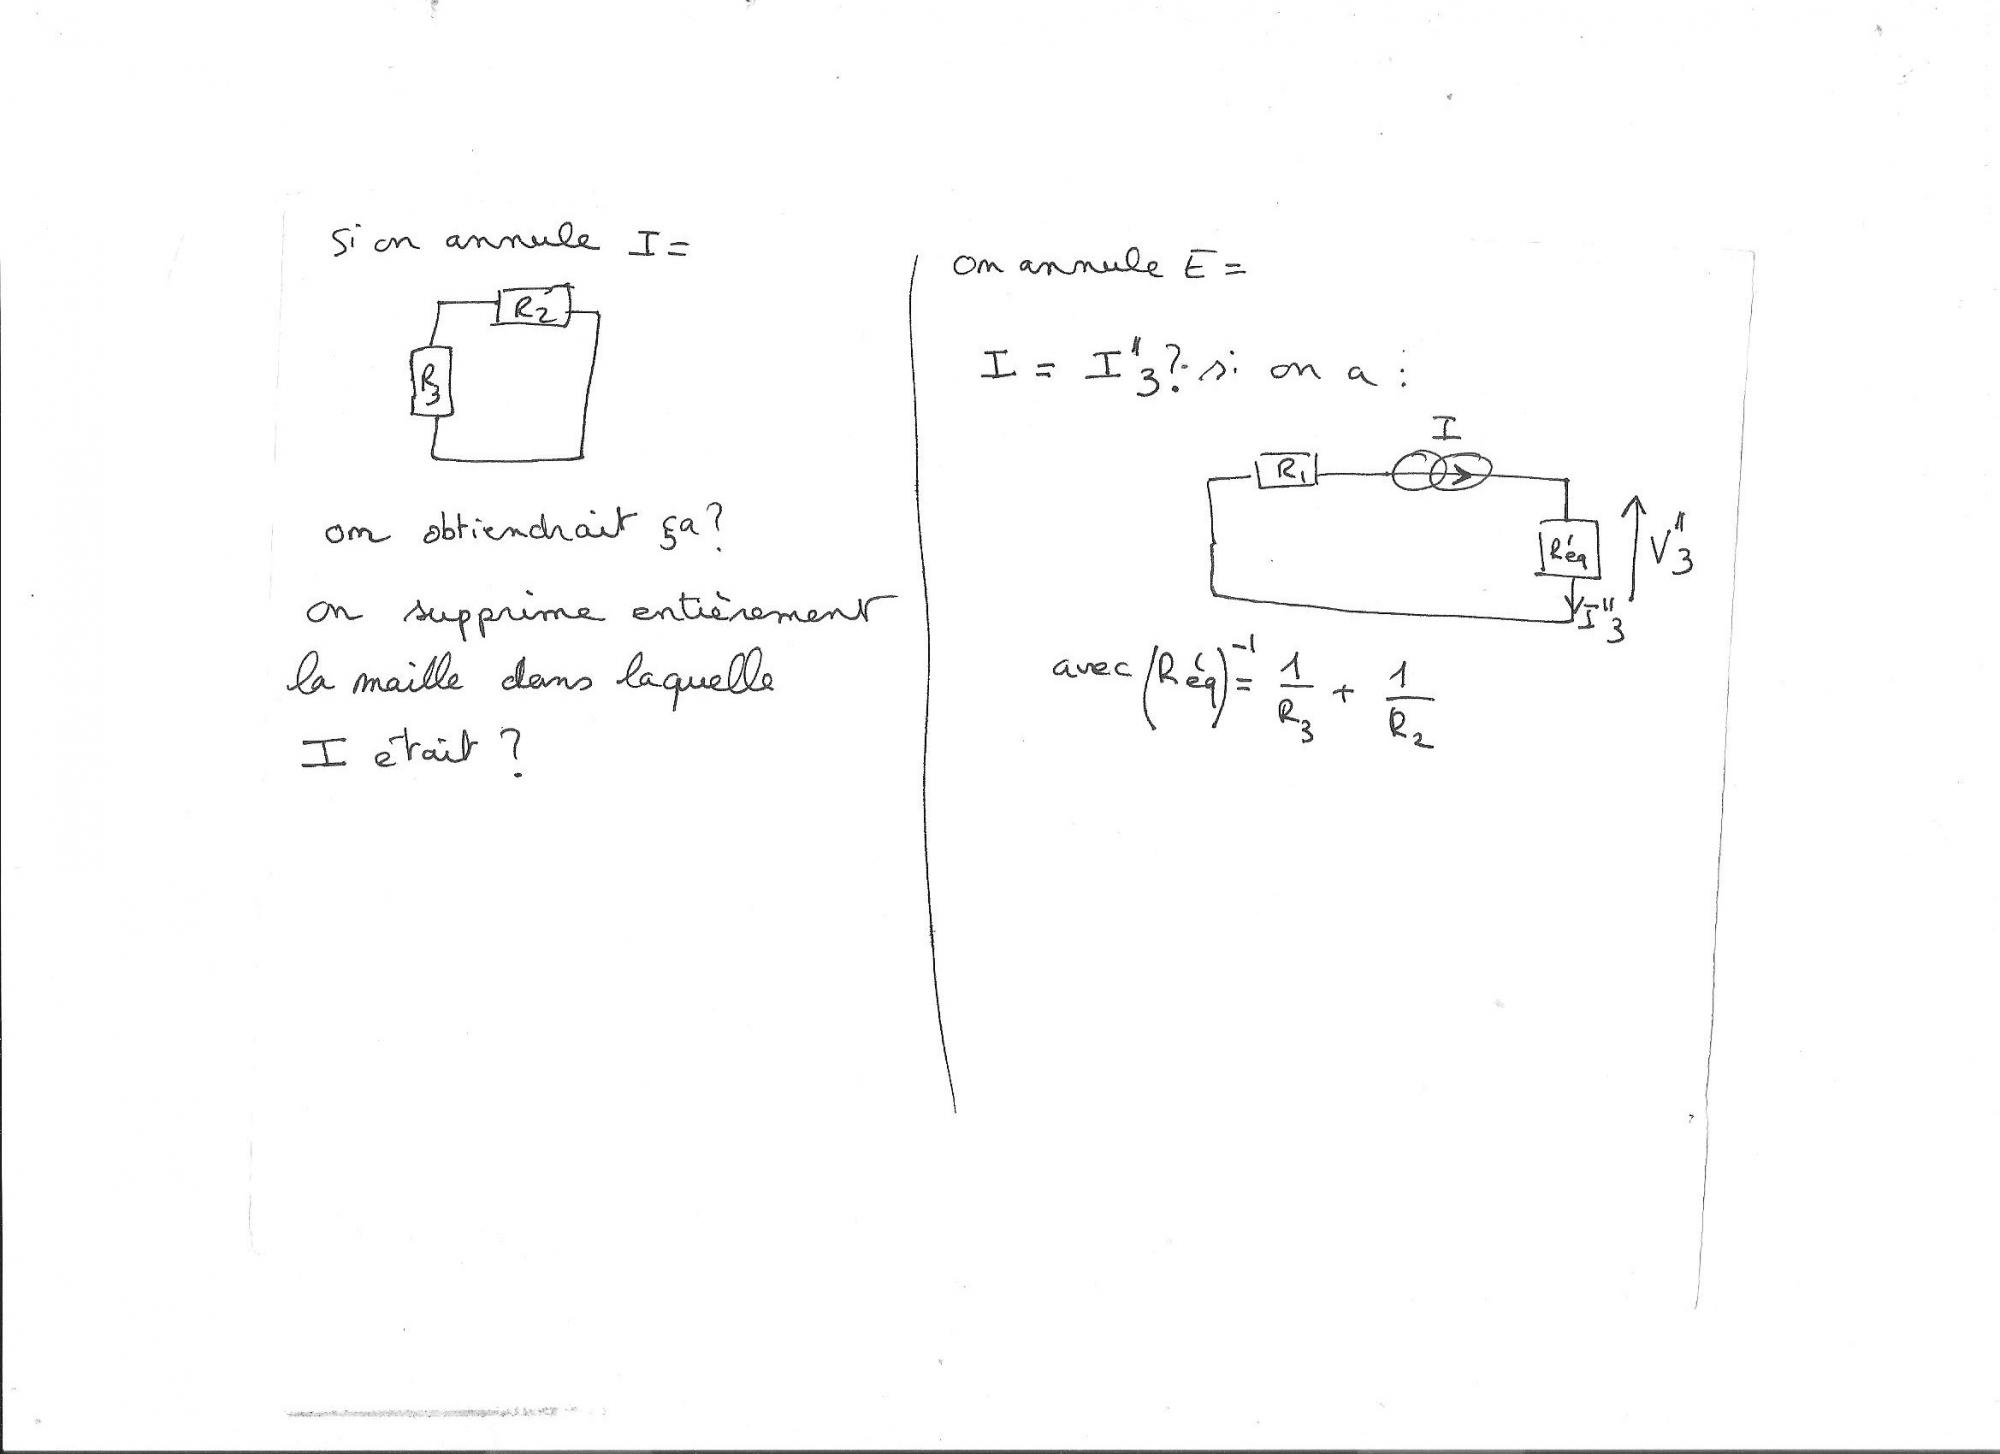 Si on annule I =
R2
R3
on obtiendrait ça?
on supprime entièrement
la maille dans laquelle
I était ?
on annule E =
I = I"3 ? si on a :
I
R1
Réq
V"3
I"3
avec (Réq)^-1 = 1/R3 + 1/R2